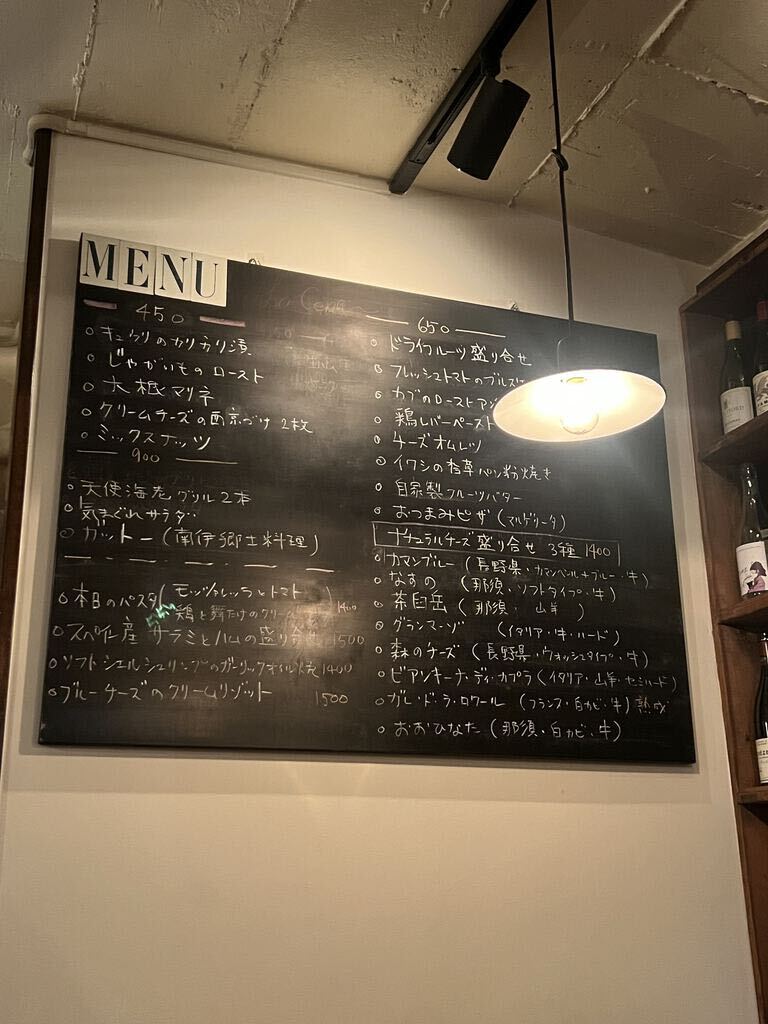 MENU
450
○キュウリのカリカリ漬
○じゃがいものロースト
○大根マリネ
○クリームチーズの西京づけ 2枚
○ミックスナッツ
900
○天使海老グリル 2本
○気まぐれサラダ
○ガットー(南伊郷土料理)
○本日のパスタ(モッツァレッラとトマト
鶏と舞たけのクリーム) 1400
○スペイン産 サラミとハムの盛り合せ 1500
○ソフトシェルシュリンプのガーリックオイル 1400
○ブルーチーズのクリームリゾット 1500
650
○ドライフルーツ盛り合せ
○フレッシュトマトのブルスケ
○カブのローストアン
○鶏レバーペースト
○チーズオムレツ
○イワシの香草パン粉焼き
○自家製フルーツバター
○おつまみピザ(マルゲリータ)
ナチュラルチーズ盛り合せ 3種 1400
○カマンブルー(長野県・カマンベール+ブルー・牛)
○なすの (那須・ソフトタイプ・牛)
○茶臼岳 (那須・山羊)
○グランマーゾ (イタリア・牛・ハード)
○森のチーズ(長野県・ウォッシュタイプ・牛)
○ビアンキーナ・ディ・カプラ(イタリア・山羊・セミハード)
○ガレ・ド・ラ・ロワール(フランス・白カビ・牛)熟成
○おおひなた(那須・白カビ・牛)